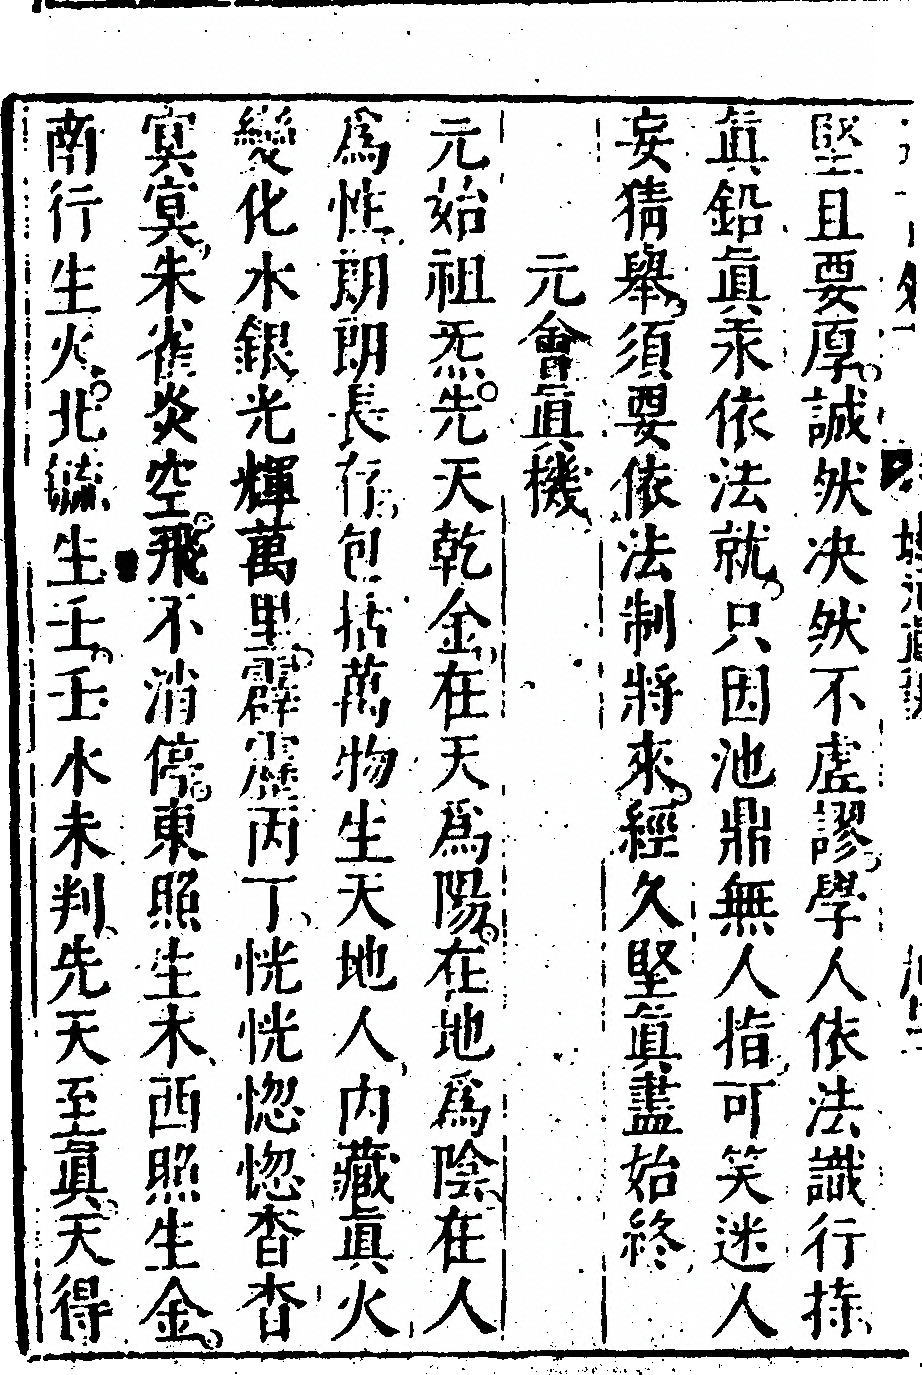 堅且要厚誠然决然不虛謬學人依法識行持
眞鉛眞汞依法就只因池鼎無人指可笑迷人
妄猜舉須要依法制將來經久堅眞盡始終
元會眞機
元始祖炁先天乾金在天爲陽在地爲陰在人
爲性朗朗長存包括萬物生天地人内藏眞火
變化水銀光輝萬里霹靂丙丁恍恍惚惚杳杳
㝠㝠朱雀炎空飛不消停東照生木西照生金
南行生火北毓生壬壬水未判先天至眞天得